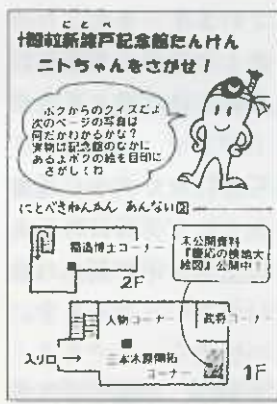 にとべ
十和田市立新渡戸記念館たんけん
ニトちゃんをさがせ!
ボクからのクイズだよ
次のページの写真は
何だかわかるかな?
実物は記念館のなかに
あるよボクの絵を目印に
さがしてね
にとべきねんかん あんない図
稲造博士コーナー
2F
未公開資料
『慶応の検地大
絵図』公開中!
人物コーナー
武将コーナー
入り口→
三本木原開拓
コーナー
1F